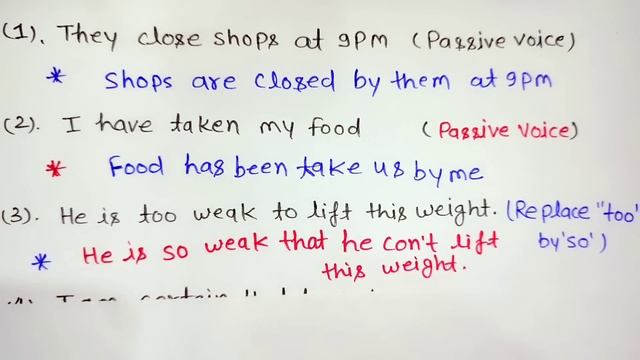 (1). They close shops at 9pm (Passive voice)
* Shops are closed by them at 9pm
(2). I have taken my food (Passive Voice)
* Food has been take us by me
(3). He is too weak to lift this weight. (Replace "too'
by 'so')
* He is so weak that he con't lift
this weight.